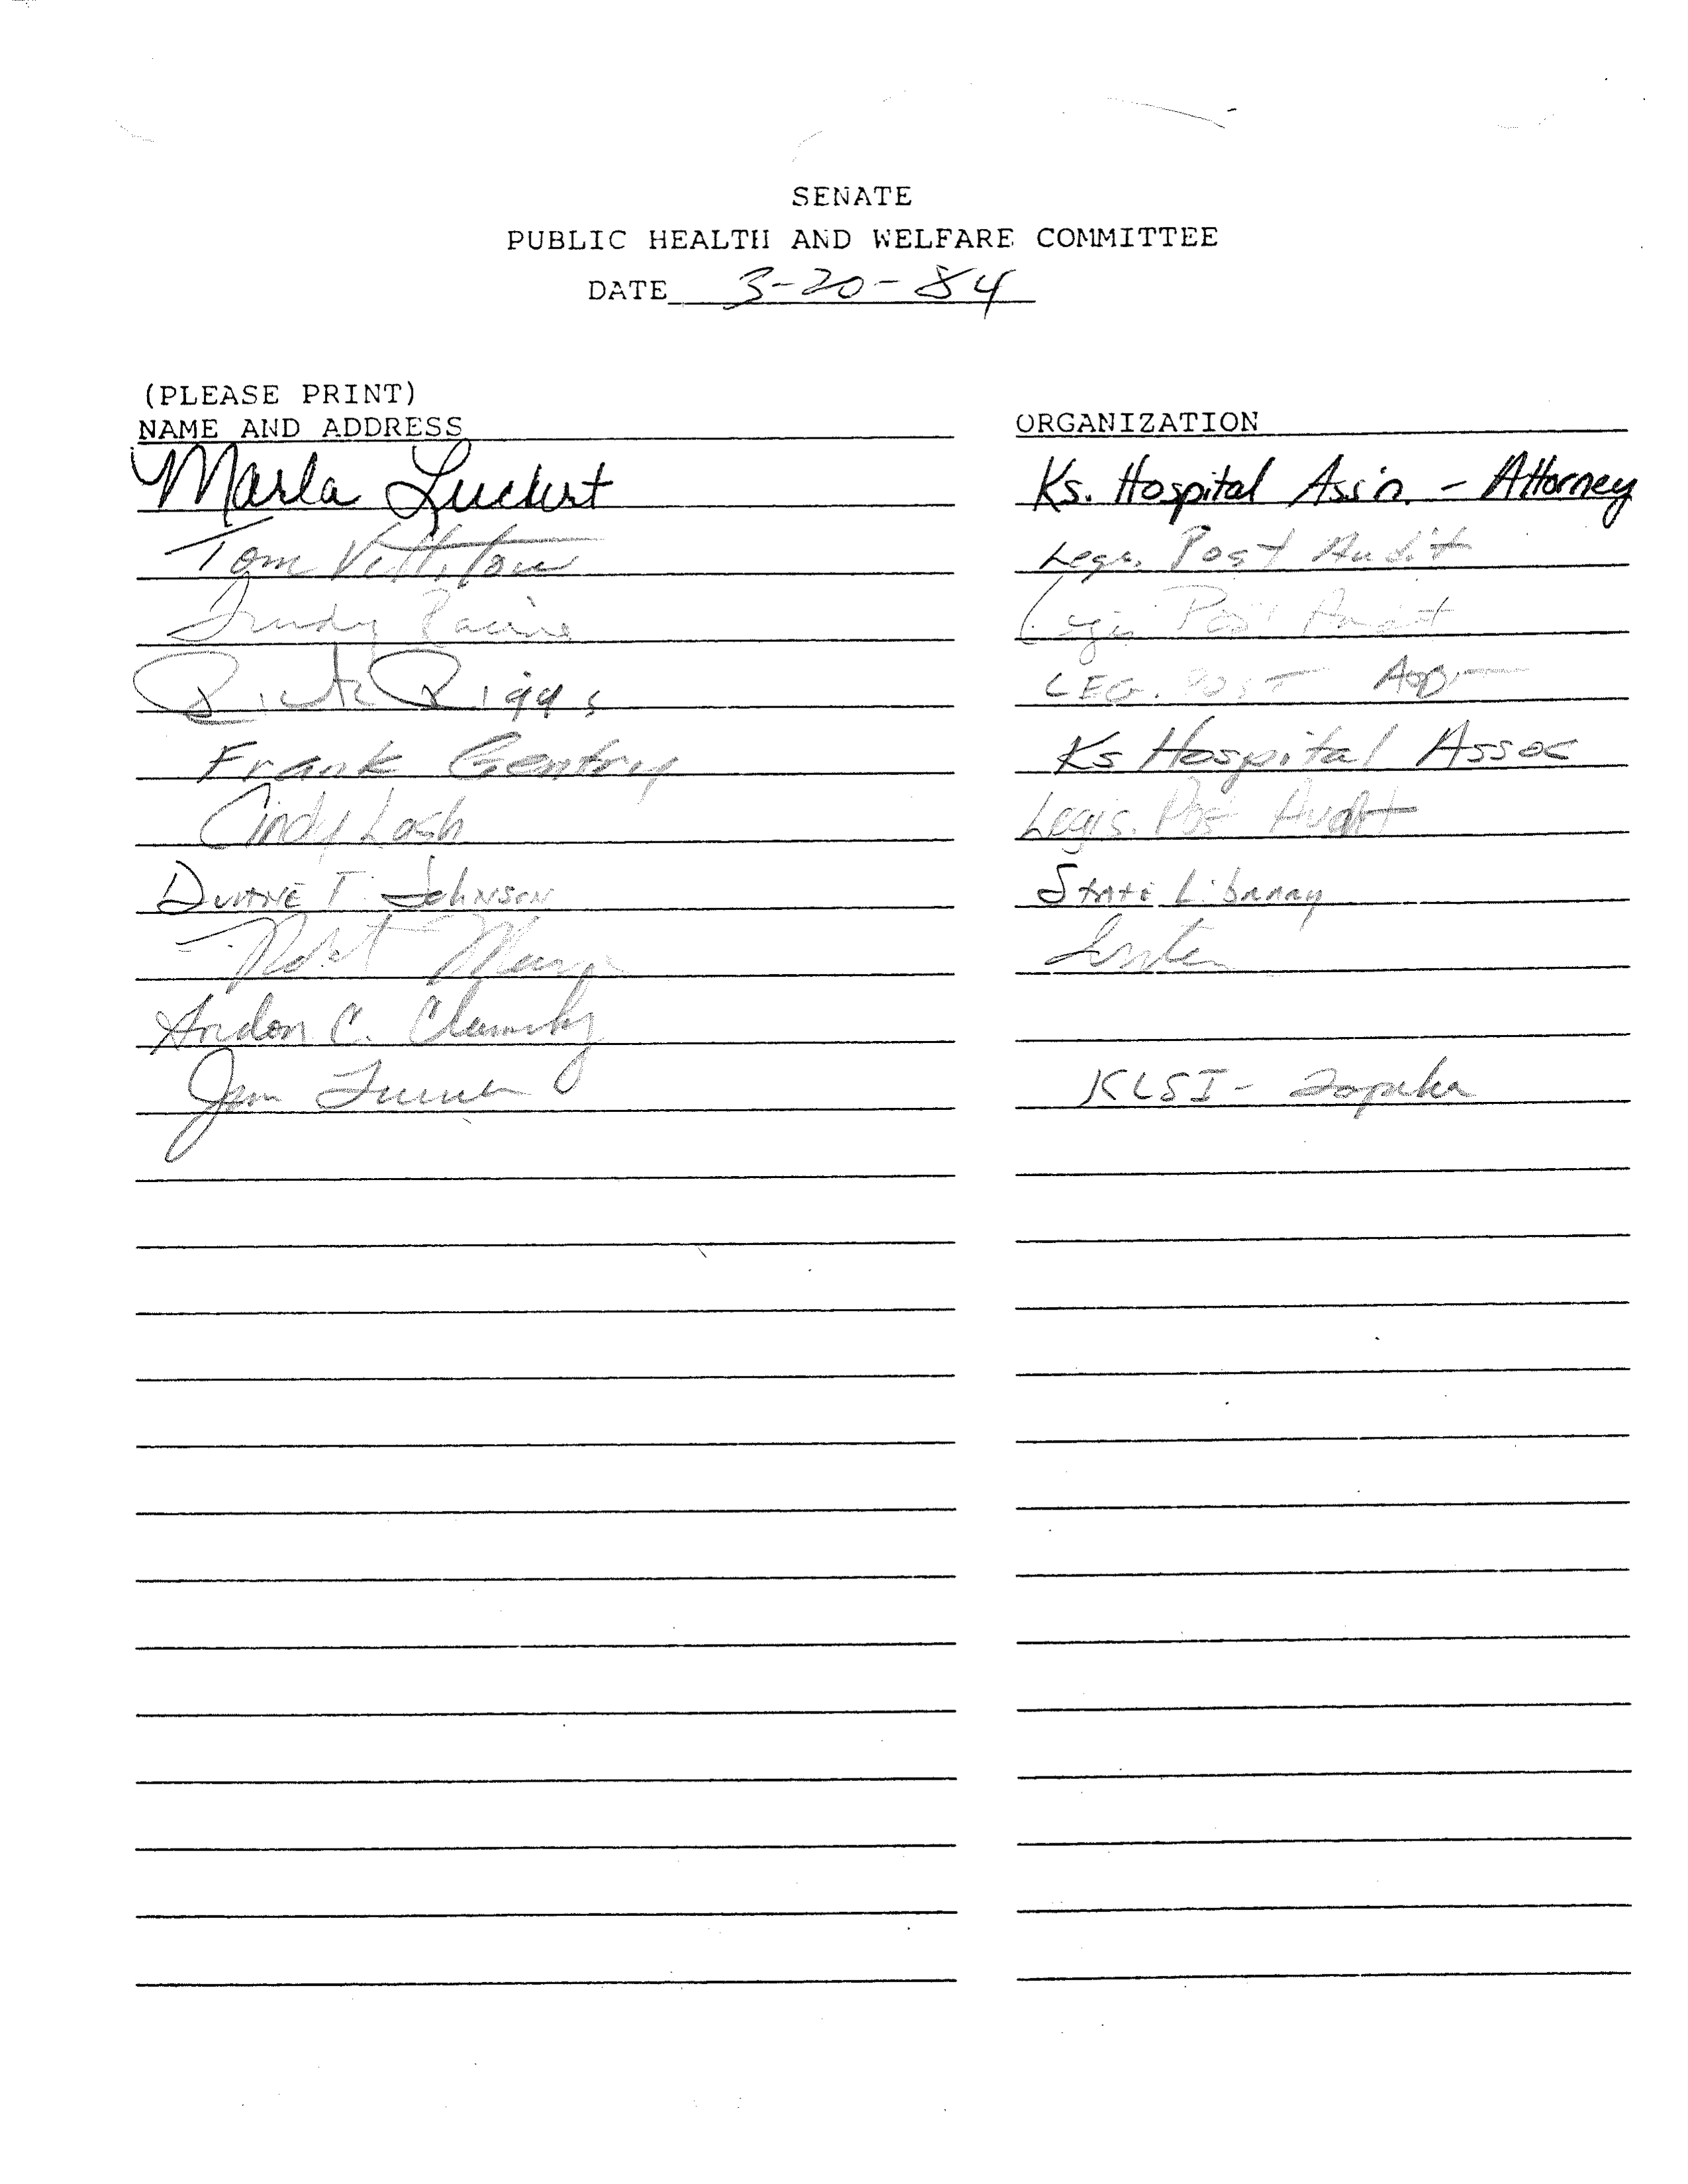 SENATE
PUBLIC HEALTH AND WELFARE COMMITTEE
DATE 3-20-84
(PLEASE PRINT)
NAME AND ADDRESS ORGANIZATION
Marla Luckert Ks. Hospital Ass'n. - Attorney
Tom Vittitow Legis. Post Audit
Trudy Racine Legis. Post Audit
Rick Riggs LEG. POST AUDIT
Frank Gentry Ks Hospital Assoc
Cindy Lash Legis. Post Audit
DUANE F. Johnson State Library
C.
Jim KLSI - Topeka